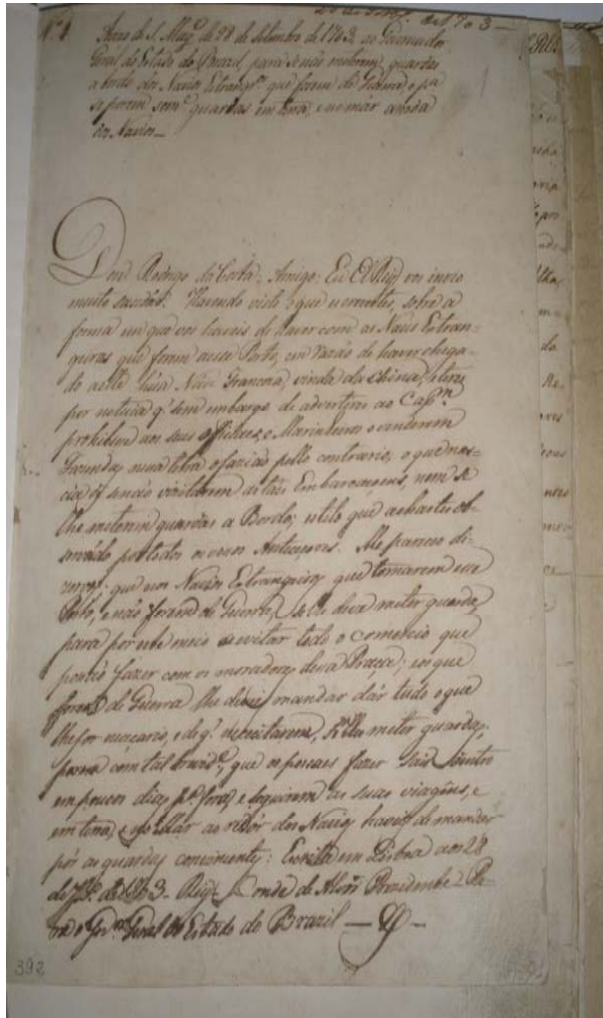 de 1703 —
Nº 1
de S. Mag.e de 28 de Setembro de 1703, ao Governador
Geral do Estado do Brazil, para se não meterem guardas
a bordo dos Navios Estrangr.os que forem de Guerra, e pa
se porem som.e guardas em terra, e no mar aroda
dos Navios —
Dom Rodrigo da Costa, Amigo: Eu El Rey vos invio
muito saudár. Havendo visto o que escrevestes, sobre a
forma em que vos haveis de haver com as Naus Estran-
geiras que forem a esse Porto, em razão de haver chega-
do a este húa Náu Franceza, vinda da China, e teres
por noticia q' sem embargo de advertires ao Capp.m
prohibisse aos seus officiaes, e Marinheiros o venderem
Fazendas nessa terra o fazião pello contrario, o que nas-
cia de se não vizitarem as tais Embarcaçoens, nem se
lhe meterem guardas a Bordo; estilo que achastes ob-
servado por todos os vossos Antecesores. Me pareceo di-
zervos que nos Navios Estrangeiros que tomarem esse
Porto, e não forem de Guerra, se lhe deva meter guarda,
para por este meio se evitar todo o comercio que
podião fazer com os moradores dessa Praça; e os que
forem de Guerra lhe deveis mandar dár tudo o que
lhe for necesario, e de q' necesitarem, meter guardas,
porem com tal que os posaes fazer sair dentro
em poucos dias p.a fora, e seguirem as suas viagens, e
em terra, e no mar ao redór dos Navios haveis de mandar
pôr as guardas convenientes: Escrita em Lisboa aos 28
de 7br.o de 1703 — Rey — Conde de Alvor Prezidente — Pa
ra o Gov.or Geral do Estado do Brazil —
392